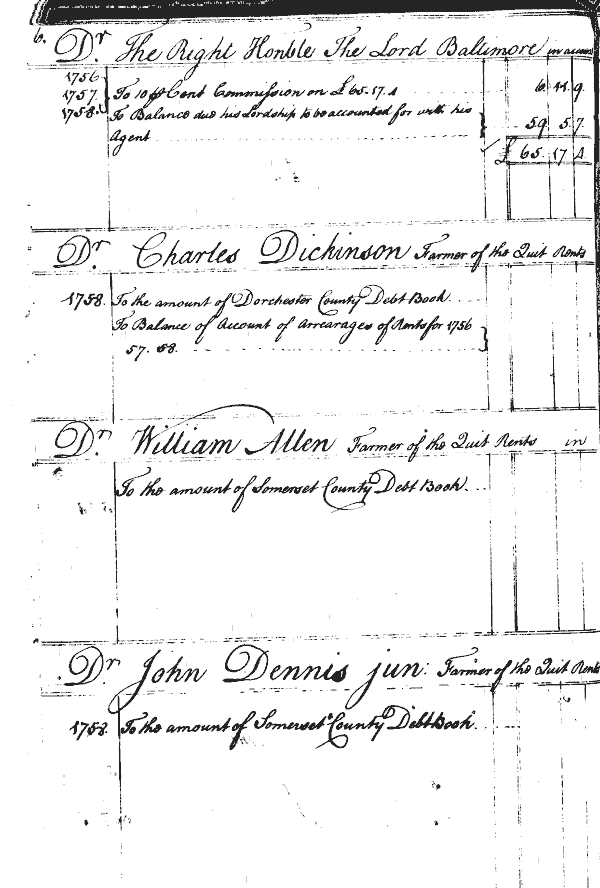 6.
Dr. The Right Honble The Lord Baltimore in accou
1756
1757 To 10 ⅌ Cent Commission on £ 65.17.4 6 11 9
1758 To Balance due his Lordship to be accounted for with his
Agent 59 5 7
£ 65 17 4
Dr. Charles Dickinson Farmer of the Quit Rents
1758. To the amount of Dorchester County Debt Book
To Balance of Account of Arrearages of Rents for 1756
57. 58.
Dr. William Allen Farmer of the Quit Rents in
To the amount of Somerset County Debt Book.
Dr. John Dennis jun: Farmer of the Quit Rents
1758. To the amount of Somerset County Debt Book.